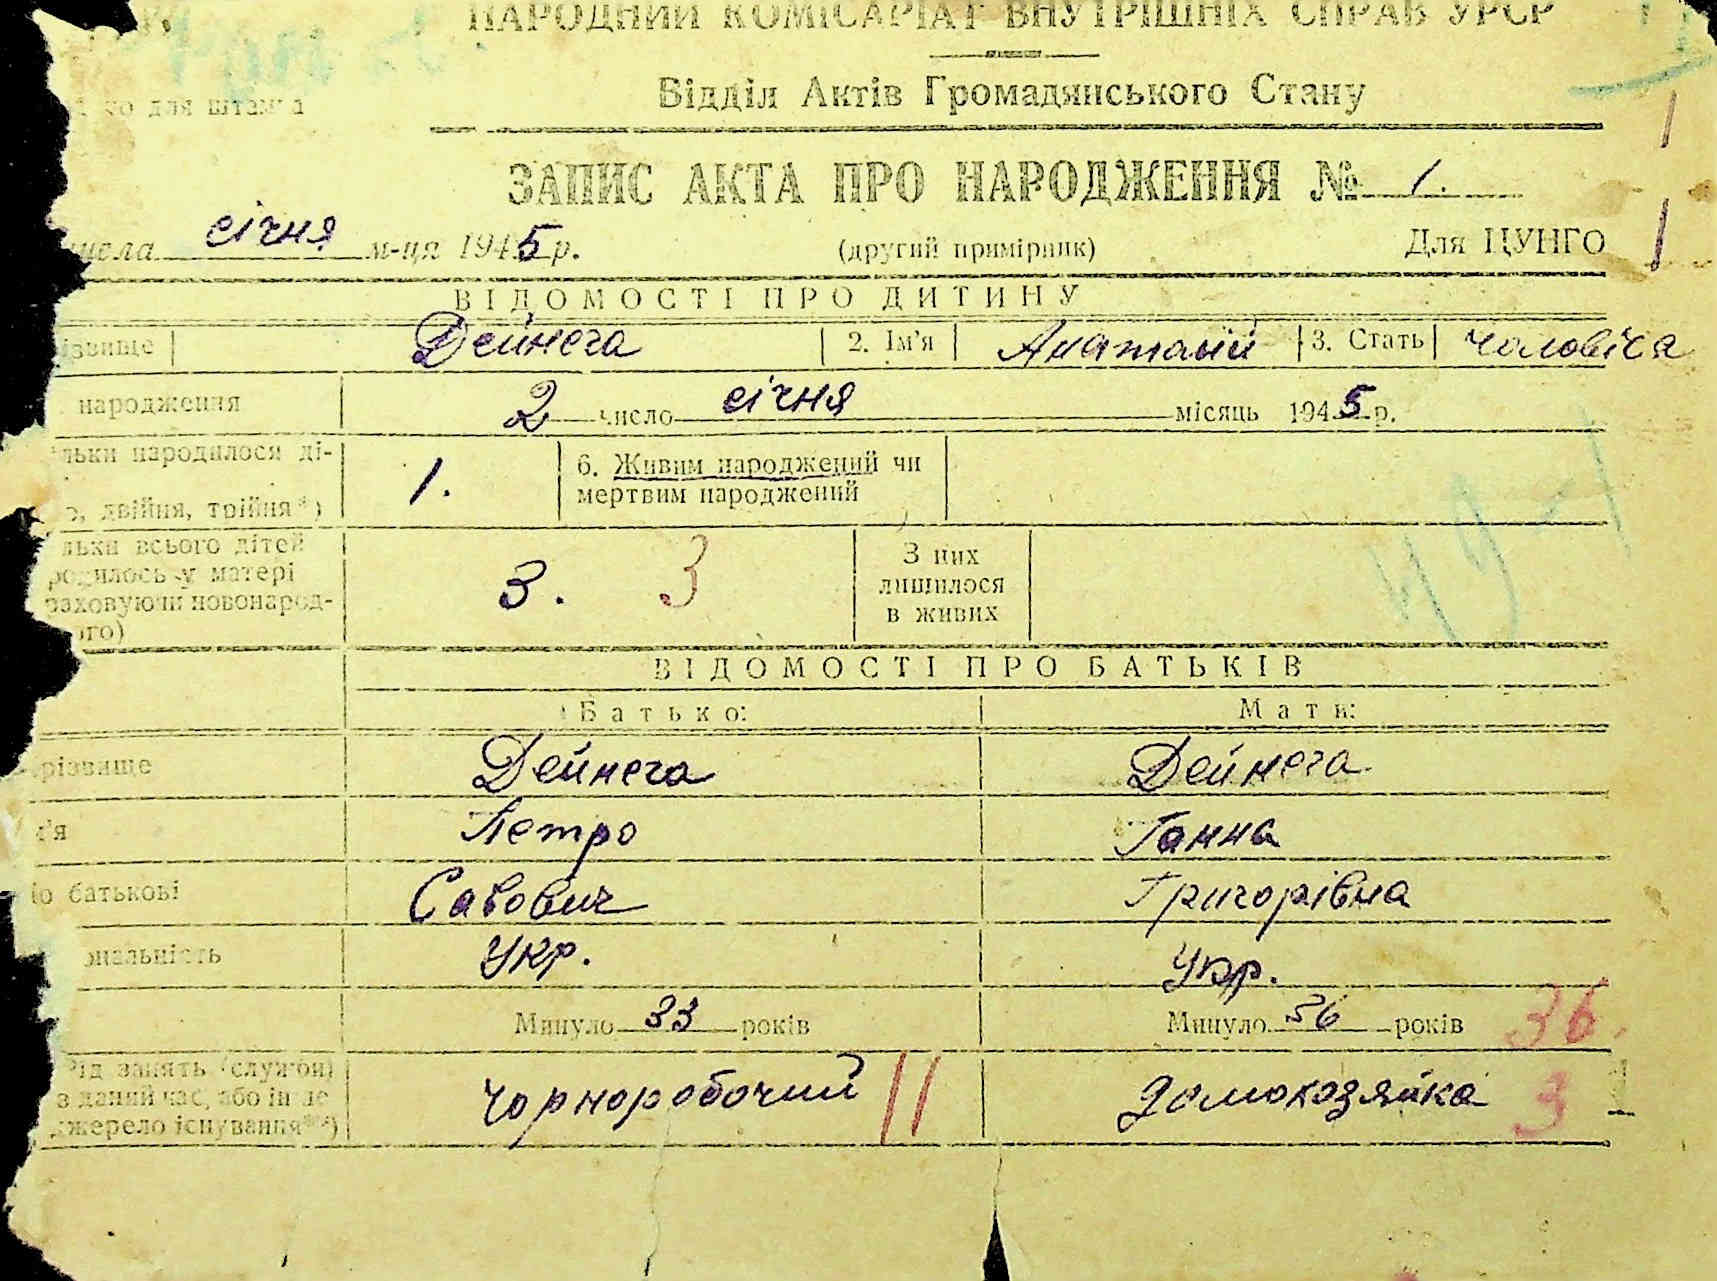 НАРОДНИЙ КОМІСАРІАТ ВНУТРІШНІХ СПРАВ УРСР
для штампа
Відділ Актів Громадянського Стану
ЗАПИС АКТА ПРО НАРОДЖЕННЯ № 1.
числа січня м-ця 1945 р. (другий примірник) Для ЦУНГО
ВІДОМОСТІ ПРО ДИТИНУ
різвище Дейнега 2. Ім'я Анатолій 3. Стать чоловіча
народження 2 число січня місяць 1945 р.
льки народилося ді-
о, двійня, трійня*) 1. 6. Живим народжений чи
мертвим народжений
льки всього дітей
родилось у матері
раховуючи новонарод-
ого) 3. 3 З них
лишилося
в живих
ВІДОМОСТІ ПРО БАТЬКІВ
Батько: Мати:
різвище Дейнега Дейнега
м'я Петро Ганна
По батькові Савович Григорівна
ональність Укр. Укр.
Минуло 33 років Минуло 36 років 36.
Рід занять (служби)
в даний час, або інше
джерело існування**) чорноробочий 11 домохозяйка 3